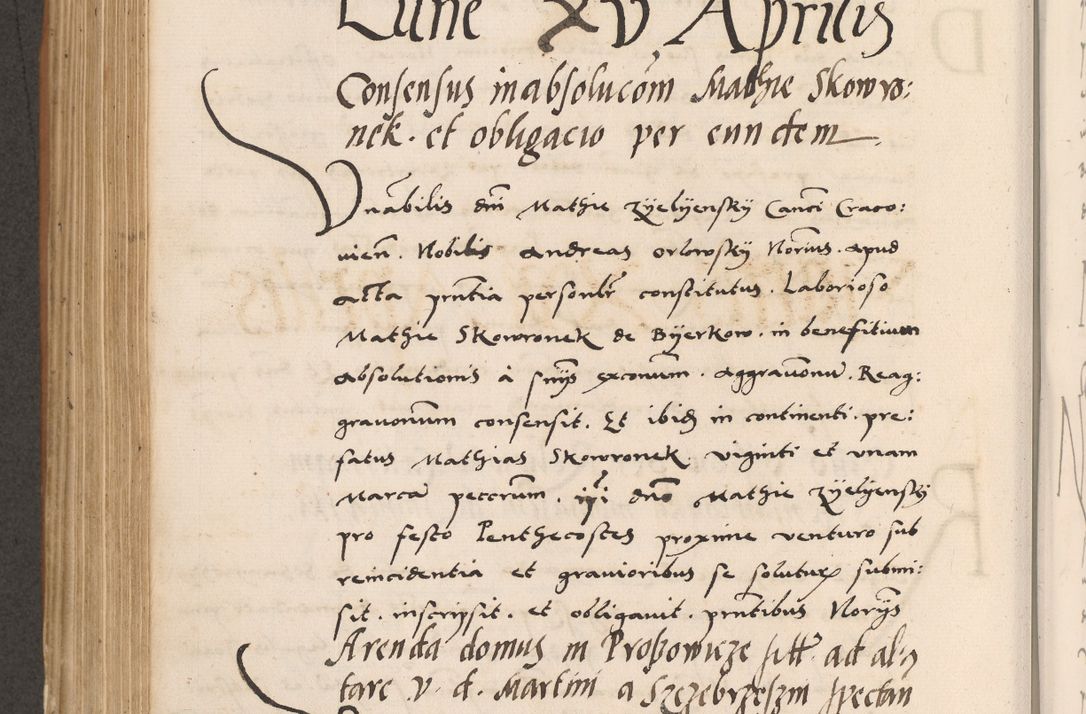 Lune XV Aprilis
Consensus in absolucōm Mathie Skowro:
nek. et obligacio per eundem
Vnābilis dm̄i Mathie Zyelyensky Canci Craco:
uien̄. Nobilis Andreas Orlowsky Norius. apud
acta pn̄tia personlr̄ constitutus. Laborioso
Mathie Skowronek de Byerkow. in benefitium
absolutionis à sn̄ijs exconum. aggrauonu. Reag:
grauonum consensit. Et ibid in continenti. pre:
fatus Mathias Skowronek. viginti et vnam
Marca peccrum. ipi dn̄o Mathie Zyelyensky
pro festo Penthecostes proxime venturo sub
reincidentia et grauioribus se soluturum submi:
sit. inscripsit. et obligauit. pn̄tibus Norijs
Arenda domus in Proszowicze sitt. ad al:
tare v. d. Martini a Szczebrzeszin spectan̄